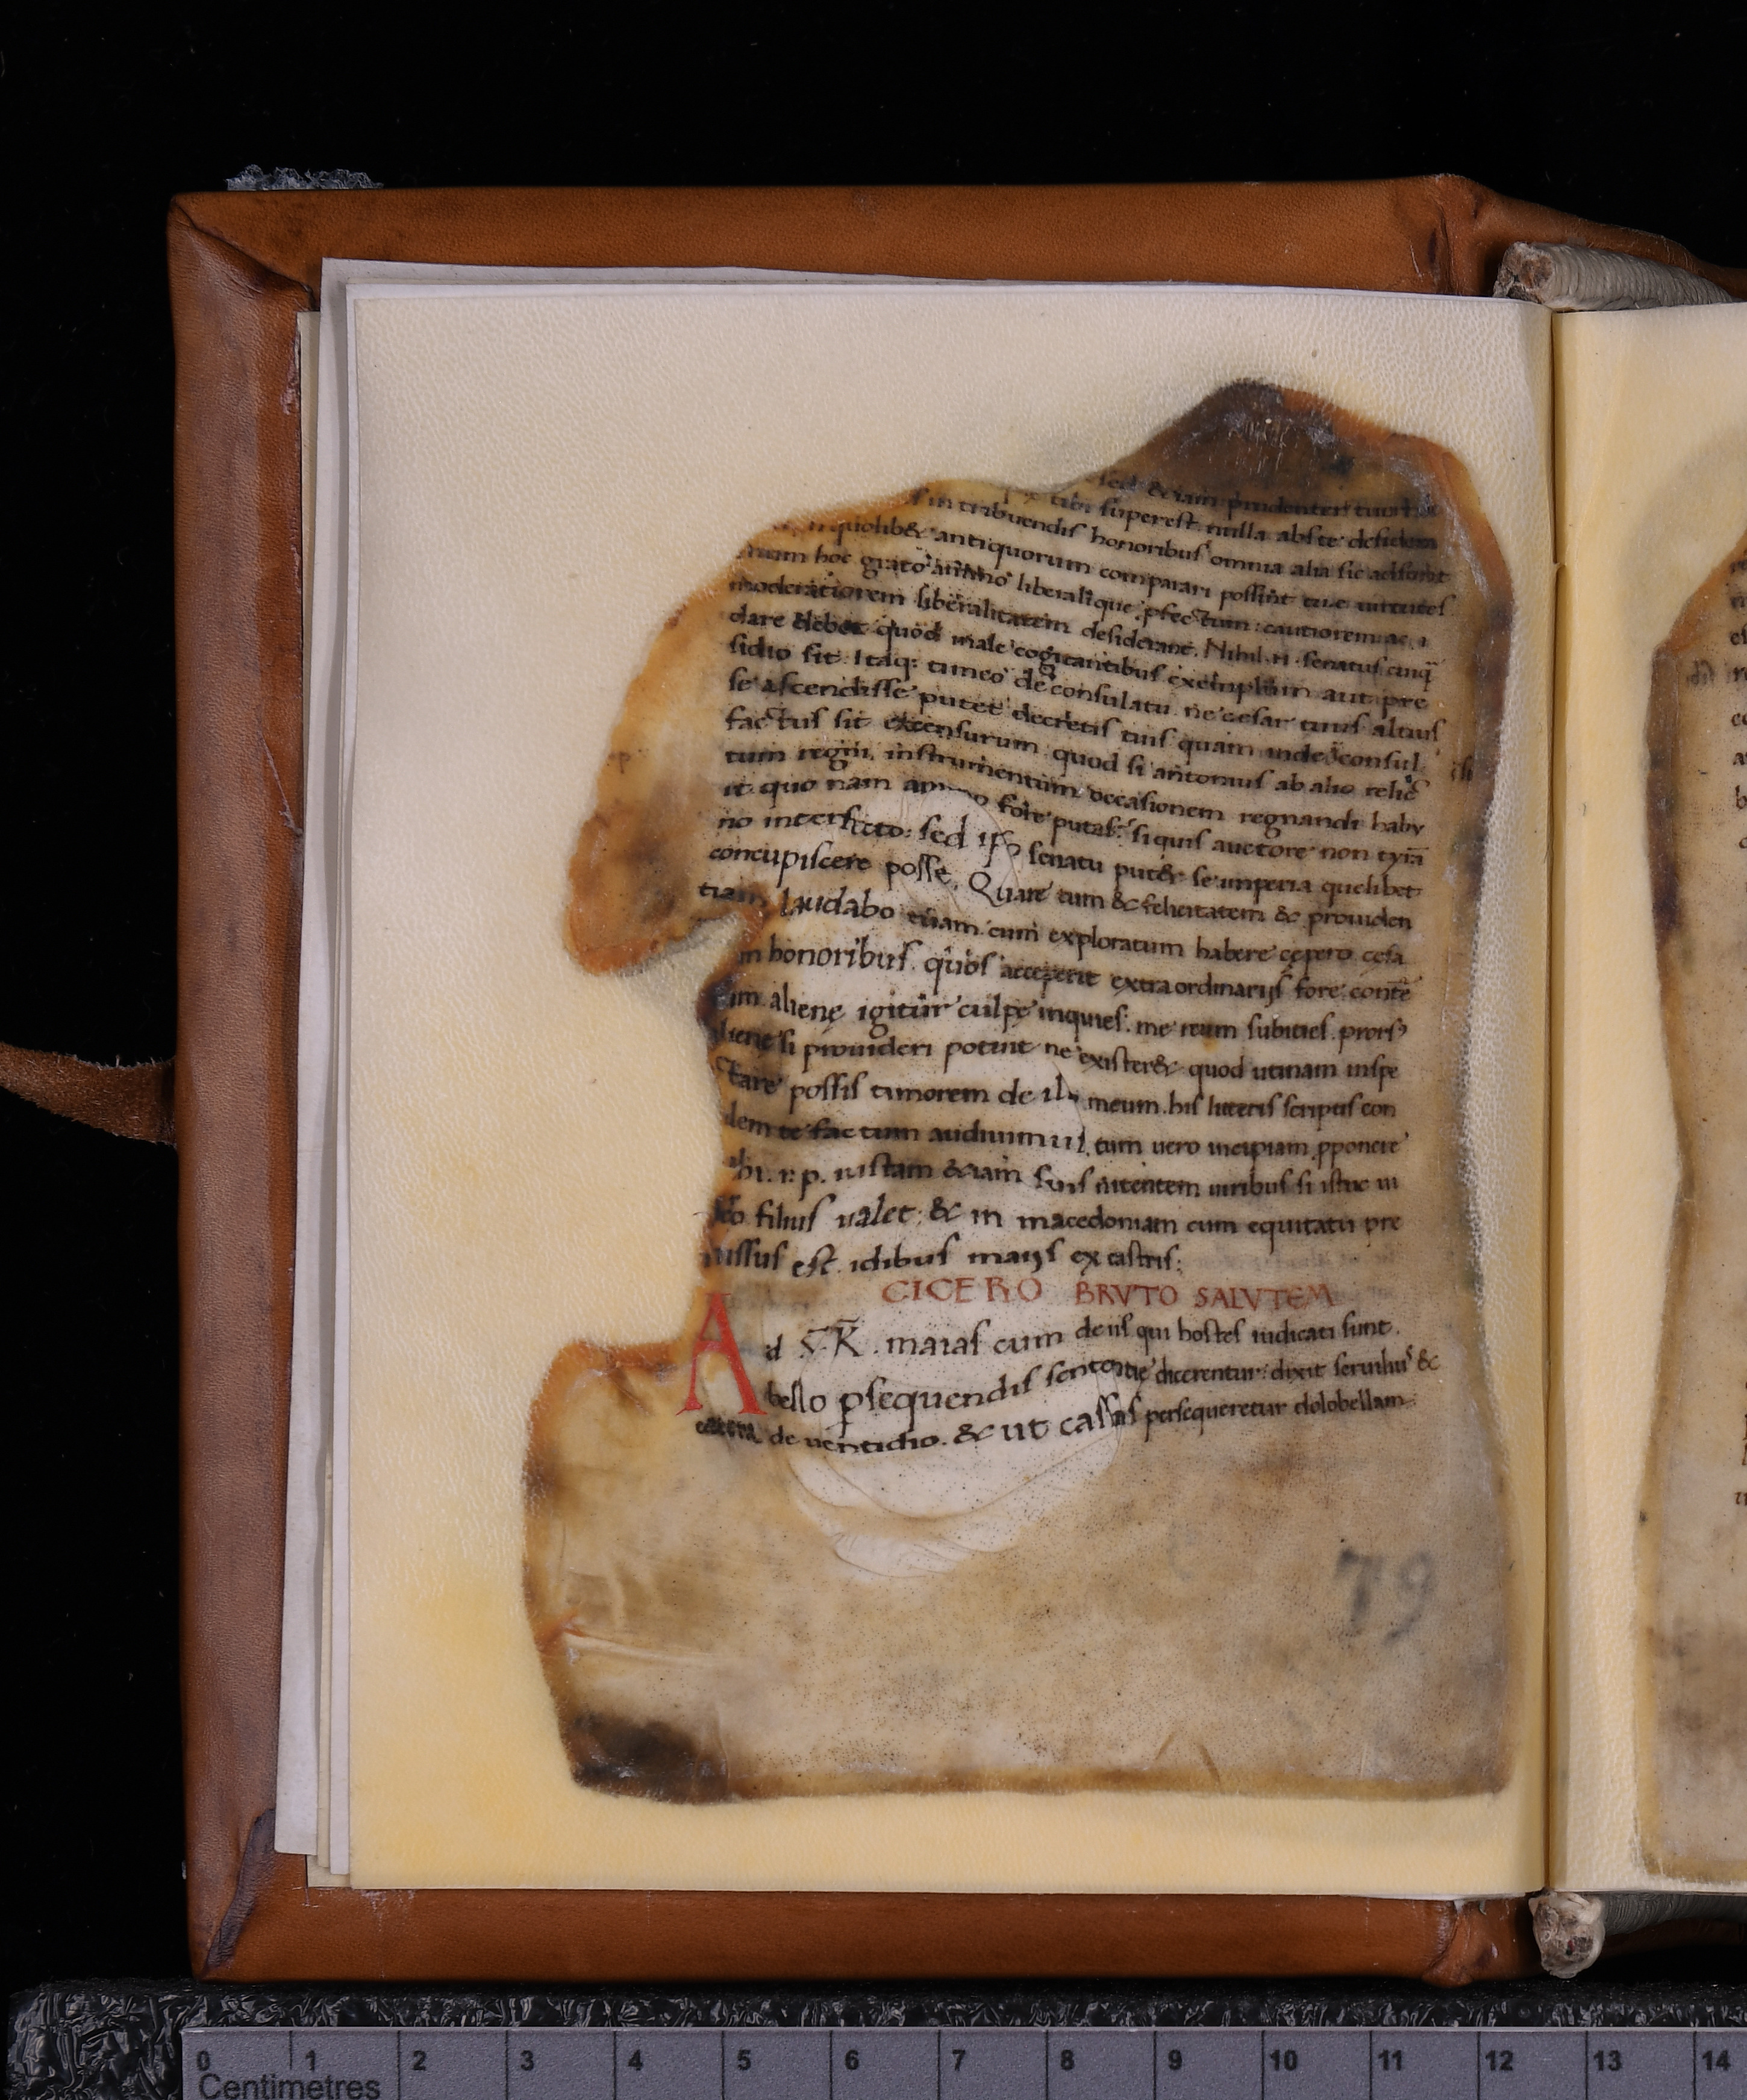 sed etiam prudenter tueri
tibi superest nulla abs te desidera
s in tribuendis honoribus omnia alia sic adsunt
quolib& antiquorum comparari possint tue uirtutes
num hoc grato animo liberalique pfectum: cautiorem ac
moderatiorem liberalitatem desiderant. Nihil .n. senatus cuiq̃
dare debet quod male cogitantibus exemplum aut pre
sidio sit. Itaq; timeo de consulatu. ne cesar tuus altius
se ascendisse putet decretis tuis quam inde si consul
factus sit escensurum. quod si antonius ab alio relic
tum regni. instrumentum occasionem regnandi habu
it quo nam animo fore putas. si quis auctore non tyrā
no interfecto: sed ipso senatu put& se imperia quelibet
concupiscere posse. Quare tum & felicitatem & prouiden
tiam laudabo tuam. cum exploratum habere cępero cęsa
in honoribus. quos acceperit extraordinariis fore contē
tum. alienę igitur culpę inquies. me reum subities. prors
alienę si prouideri potuit ne exister& quod utinam inspe
ctare possis timorem de illo meum. his litteris scriptis con
lem te factum audiuimus. tum uero incipiam pponere
sibi. r.p. iustam &iam suis nitentem uiribus si istuc ui
ro filius ualet. & in macedoniam cum equitatu pre
iussus est. idibus maiis ex castris:
CICERO BRVTO SALVTEM
Ad V.K. maias cum de iis qui hostes iudicati sunt.
bello psequendis sententie dicerentur: dixit seruilius &
cetera de uentidio. & ut cassius persequeretur dolobellam
79
0 1 2 3 4 5 6 7 8 9 10 11 12 13 14
Centimetres